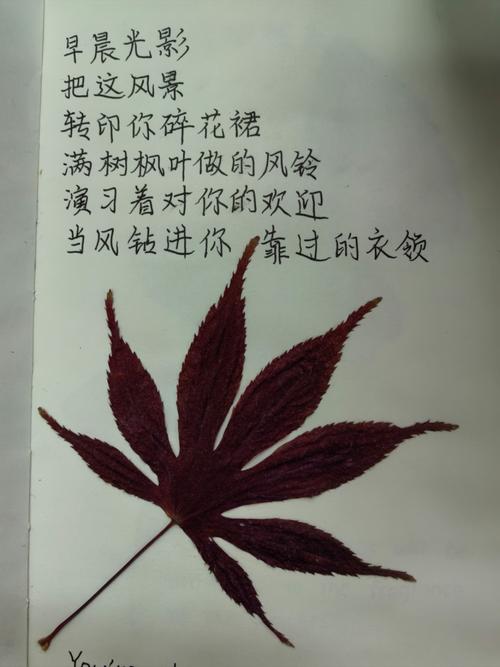 早晨光影
把这风景
转印你碎花裙
满树枫叶做的风铃
演习着对你的欢迎
当风钻进你 靠过的衣领